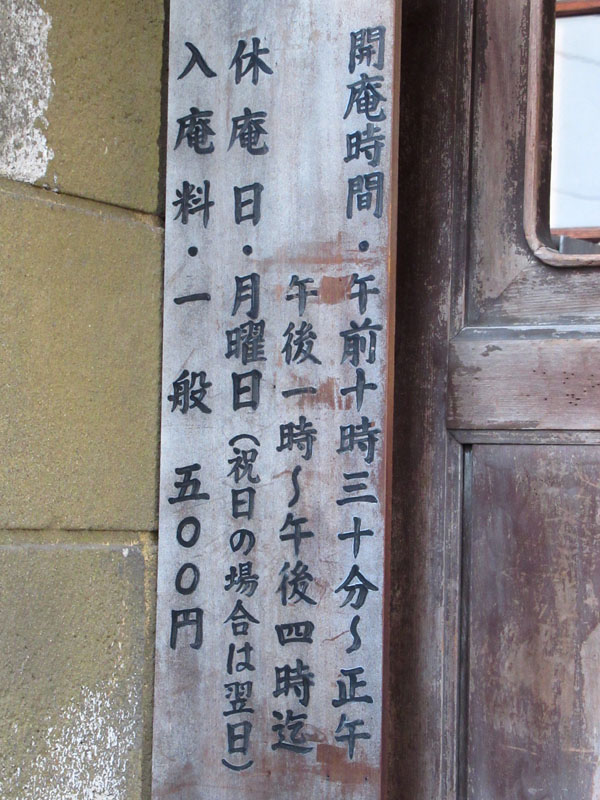 開庵時間・午前十時三十分～正午
午後一時～午後四時迄
休庵日・月曜日（祝日の場合は翌日）
入庵料・一般 五〇〇円